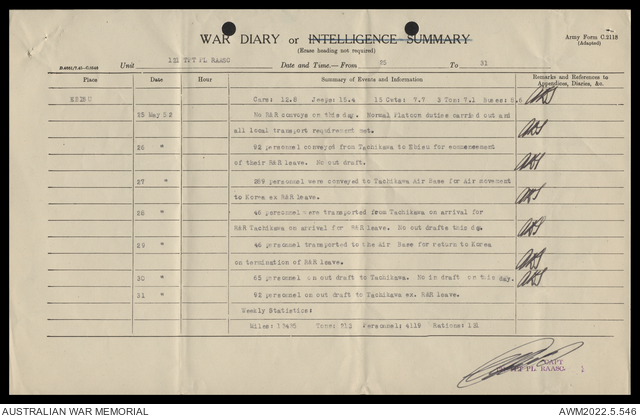 WAR DIARY or INTELLIGENCE SUMMARY
(Erase heading not required)
Army Form C.2118
(Adapted)
Unit 121 TPT PL RAASC Date and Time.—From 25 To 31
Place Date Hour Summary of Events and Information Remarks and References to Appendices, Diaries, &c.
EBISU Cars: 12.8 Jeeps: 15.4 15 Cwts: 7.7 3 Ton: 7.1 Buses: 5.6
25 May 52 No R&R convoys on this day. Normal Platoon duties carried out and
all local transport requirement met.
26 " 92 personnel conveyed from Tachikawa to Ebisu for commencement
of their R&R leave. No out draft.
27 " 289 personnel were conveyed to Tachikawa Air Base for Air movement
to Korea ex R&R leave.
28 " 46 personnel were transported from Tachikawa on arrival for
R&R Tachikawa on arrival for R&R leave. No out drafts this day.
29 " 46 personnel transported to the Air Base for return to Korea
on termination of R&R leave.
30 " 65 personnel on out draft to Tachikawa. No in draft on this day.
31 " 92 personnel on out draft to Tachikawa ex. R&R leave.
Weekly Statistics:
Miles: Tons: 312 Personnel: 4119 Rations: 121
CAPT
TPT PL RAASC
AUSTRALIAN WAR MEMORIAL
AWM2022.5.546